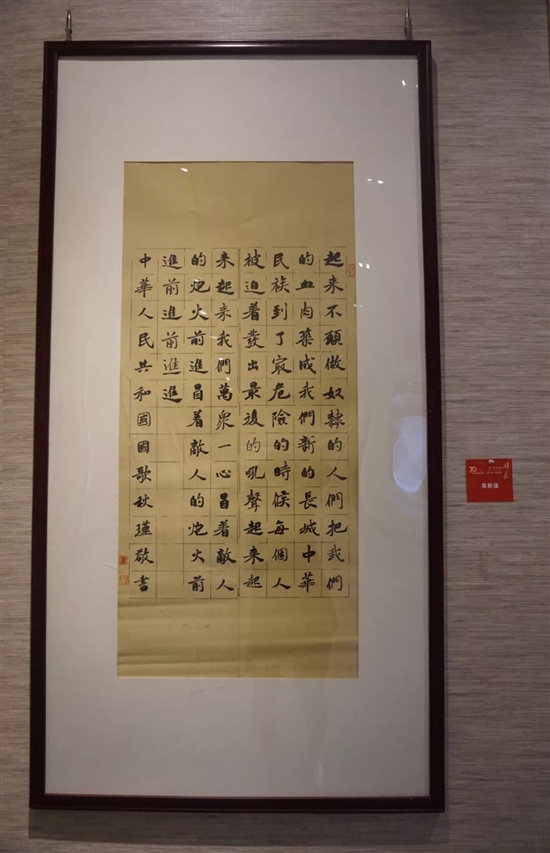 起来不願做奴隸的人們把我們
的血肉築成我們新的長城中華
民族到了最危險的時候每個人
被迫着發出最後的吼聲起来起
来起来我們萬衆一心冒着敵人
的炮火前進冒着敵人的炮火前
進前進前進進
中華人民共和國國歌秋瑾敬書
吳秋瑾